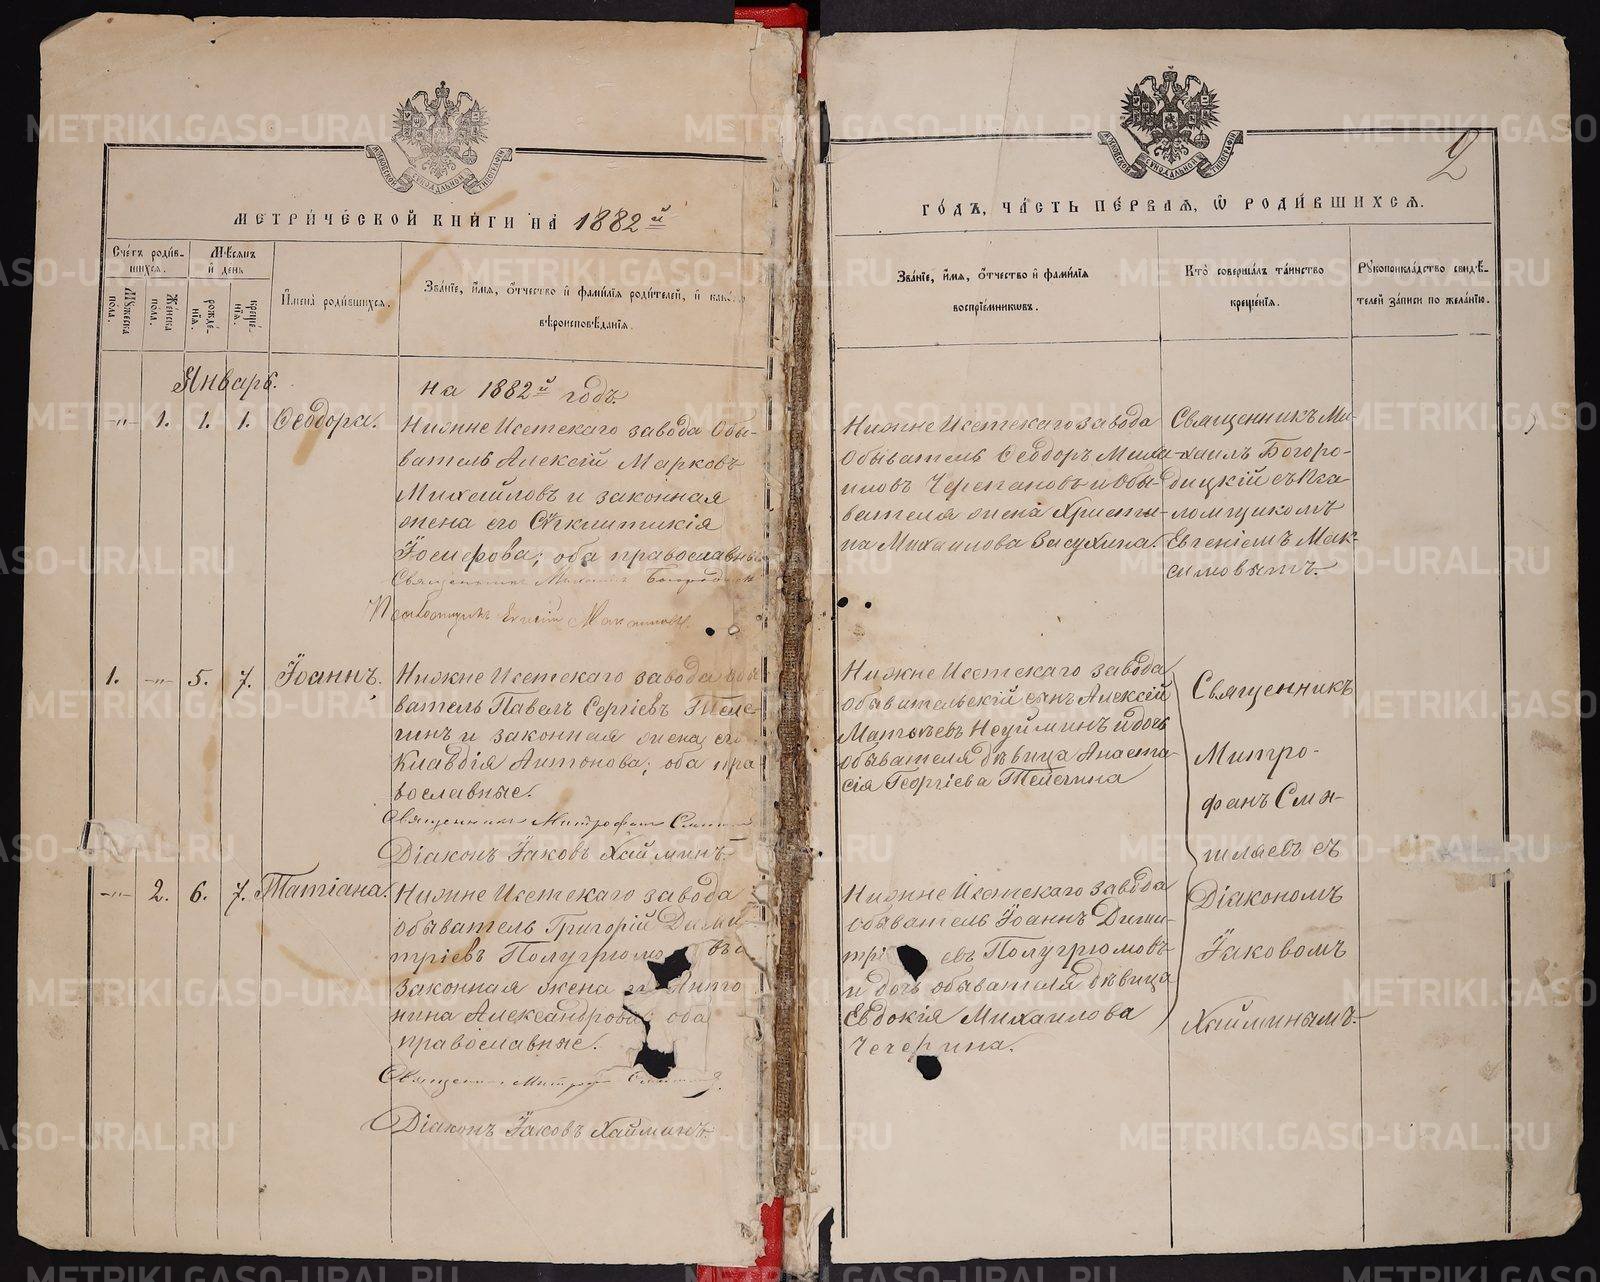 МЕТРИ́ЧЕСКОЙ КНИ́ГИ НА 1882й
Счетъ родив-
шихся.
Мѣсяцъ
и день
Мужеска
пола.
Женска
пола.
рожде-
нія.
креще-
нія.
Имена родившихся.
Званіе, имя, отчество и фамилія родителей, и какого
вѣроисповѣданія.
Январь.
на 1882й годъ.
-"- 1. 1. 1. Ѳеодора.
Нижне Исетскаго завода Обы-
ватель Алексій Марковъ
Михайловъ и законная
жена его Сѵнклитикія
Іосифова; оба православные
Священникъ Михаилъ Богородицк
Псаломщикъ Евгеній Максимовъ.
1. -"- 5. 7. Іоаннъ.
Нижне Исетскаго завода обы
ватель Павелъ Сергіевъ Теле-
гинъ и законная жена его
Клавдія Антонова; оба пра-
вославные.
Священникъ Митрофанъ
Діаконъ Іаковъ Хайминъ.
-"- 2. 6. 7. Татіана.
Нижне Исетскаго завода
обыватель Григорій Дими-
тріевъ Полугрюмо въ
законная жена Анто
нина Александрова; оба
православные.
Священ Митроф
Діаконъ Іаковъ Хайминъ.
2
ГО́ДЪ, ЧАСТЬ ПЕ́РВАЯ, Ѡ РОДИ́ВШИХСЯ.
Званіе, имя, отчество и фамилія
воспріемниковъ.
Кто совершалъ таинство
крещенія.
Рукоприкладство свидѣ-
телей записи по желанію.
Нижне Исетскаго завода
Обыватель Ѳеодоръ Миха-
иловъ Черепановъ и Обы-
вателя жена Христи-
на Михаилова Засухина.
Священникъ Ми-
хаилъ Богоро-
дицкій съ Пса
ломщикомъ
Евгеніемъ Мак-
симовымъ.
Нижне Исетскаго завода
обывательскій сынъ Алексій
Матѳеевъ Неуйминъ и дочь
обывателя дѣвица Анаста-
сія Георгіева Телегина
Нижне Исетскаго завода
обыватель Іоаннъ Дими-
трі евъ Полугрюмовъ
и дочь обывателя дѣвица
Евдокія Михаилова
Священникъ
Митро-
фанъ
съ
Діакономъ
Іаковомъ
Хайминымъ.
METRIKI.GASO-URAL.RU